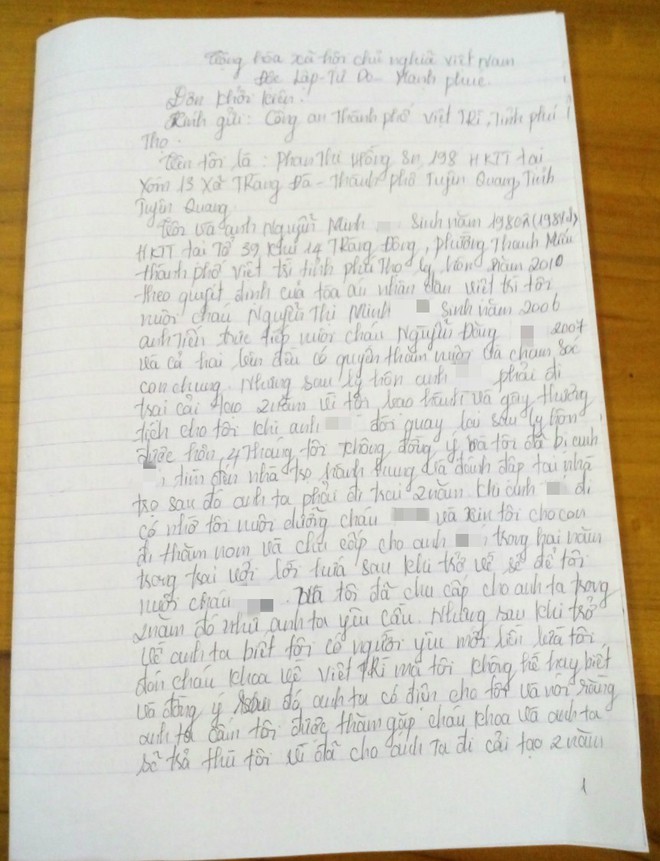 Cộng hòa xã hội chủ nghĩa Việt Nam
Độc Lập - Tự Do - Hạnh phúc.
Đơn khởi kiện:
Kính gửi: Công an Thành phố Việt Trì, Tỉnh phú
Thọ.
Tên tôi là: Phan Thị Hồng Sn, 198 HKTT tại
Xóm 13 Xã Tràng Đà - Thành phố Tuyên Quang, Tỉnh
Tuyên Quang.
Tôi và anh Nguyễn Minh Sinh năm 1980
HKTT tại Tổ 39, khu 14, phường Thanh Miếu
thành phố việt trì tỉnh phú Thọ ly hôn năm 2010
theo quyết định của tòa án nhân dân việt trì tôi
nuôi cháu Nguyễn Thị Minh sinh năm 2006
anh Tiến trực tiếp nuôi cháu Nguyễn Đăng 2007
và cả hai bên đều có quyền thăm nuôi và chăm sóc
con chung. Nhưng sau ly hôn anh phải đi
trại cải tạo 2 năm vì tội bạo hành và gây thương
tích cho tôi khi anh đòi quay lại sau ly hôn
được hơn 4 tháng tôi không đồng ý và tôi đã bị anh
tìm đến nhà trọ hành hung và đánh đập tại nhà
trọ sau đó anh ta phải đi trại 2 năm. khi anh đi
có nhờ tôi nuôi dưỡng cháu và xin tôi cho con
đi thăm nom và chu cấp cho anh trong hai năm
trong trại với lời hứa sau khi trở về sẽ để tôi
nuôi cháu . Và tôi đã chu cấp cho anh ta trong
2 năm đó như anh ta yêu cầu. Nhưng sau khi trở
về anh ta biết tôi có người yêu mới lén lừa tôi
đón cháu khoa về việt trì mà tôi không hề hay biết
và đồng ý sau đó, anh ta có điện cho tôi và nói rằng
anh ta cấm tôi được thăm gặp cháu khoa và anh ta
sẽ trả thù tôi vì đã cho anh ta đi cải tạo 2 năm
1